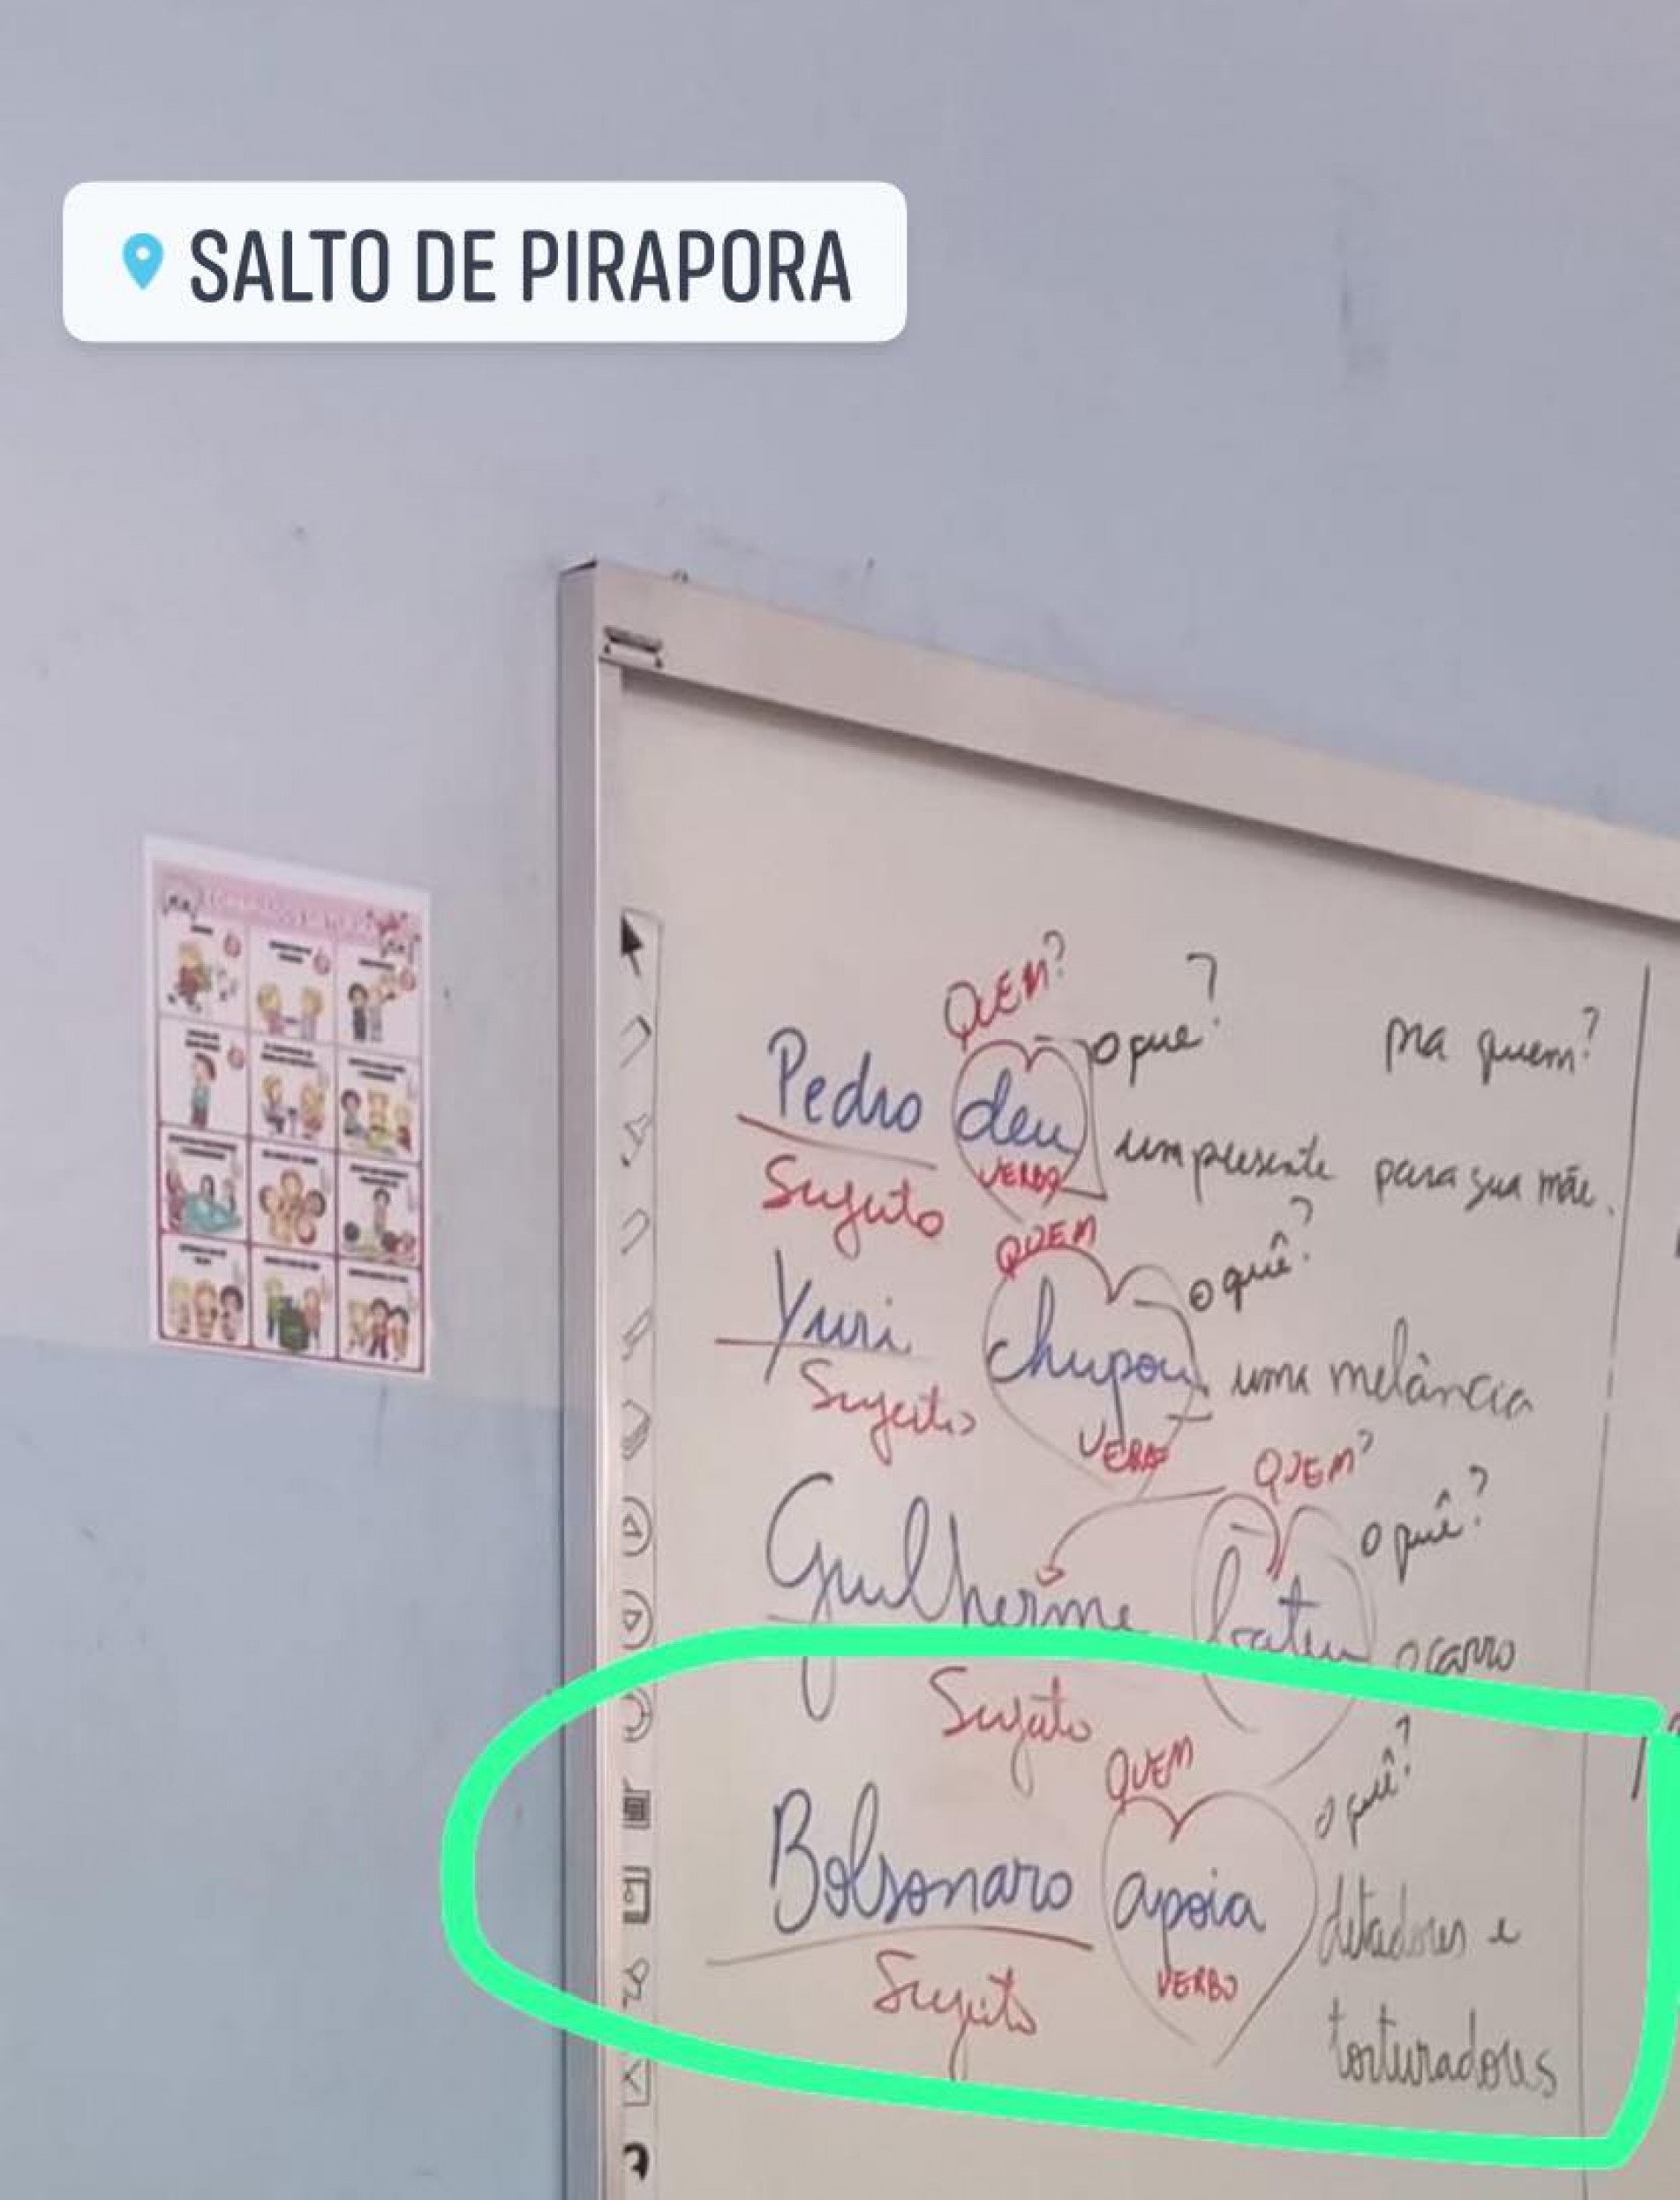 SALTO DE PIRAPORA
QUEM?
o que? pra quem?
Pedro deu um presente para sua mãe.
Sujeito VERBO
QUEM o quê?
Yuri chupou uma melância
Sujeito VERBO
QUEM? o quê?
Guilherme bateu o carro
Sujeito
QUEM o quê?
Bolsonaro apoia ditadores e
Sujeito VERBO
torturadores